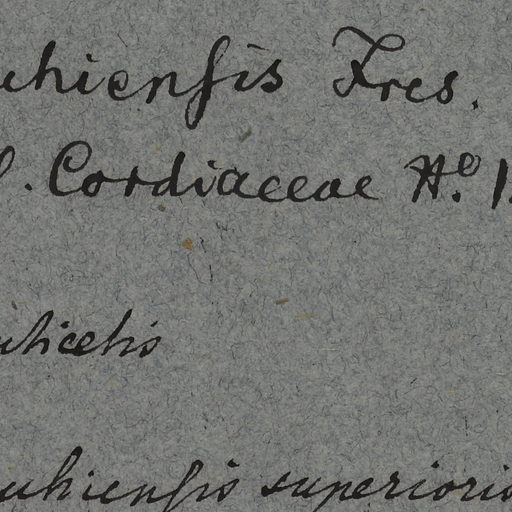 uhiensis Fres.
. Cordiaceae No. 1.
uticetis
uhiensis superioris